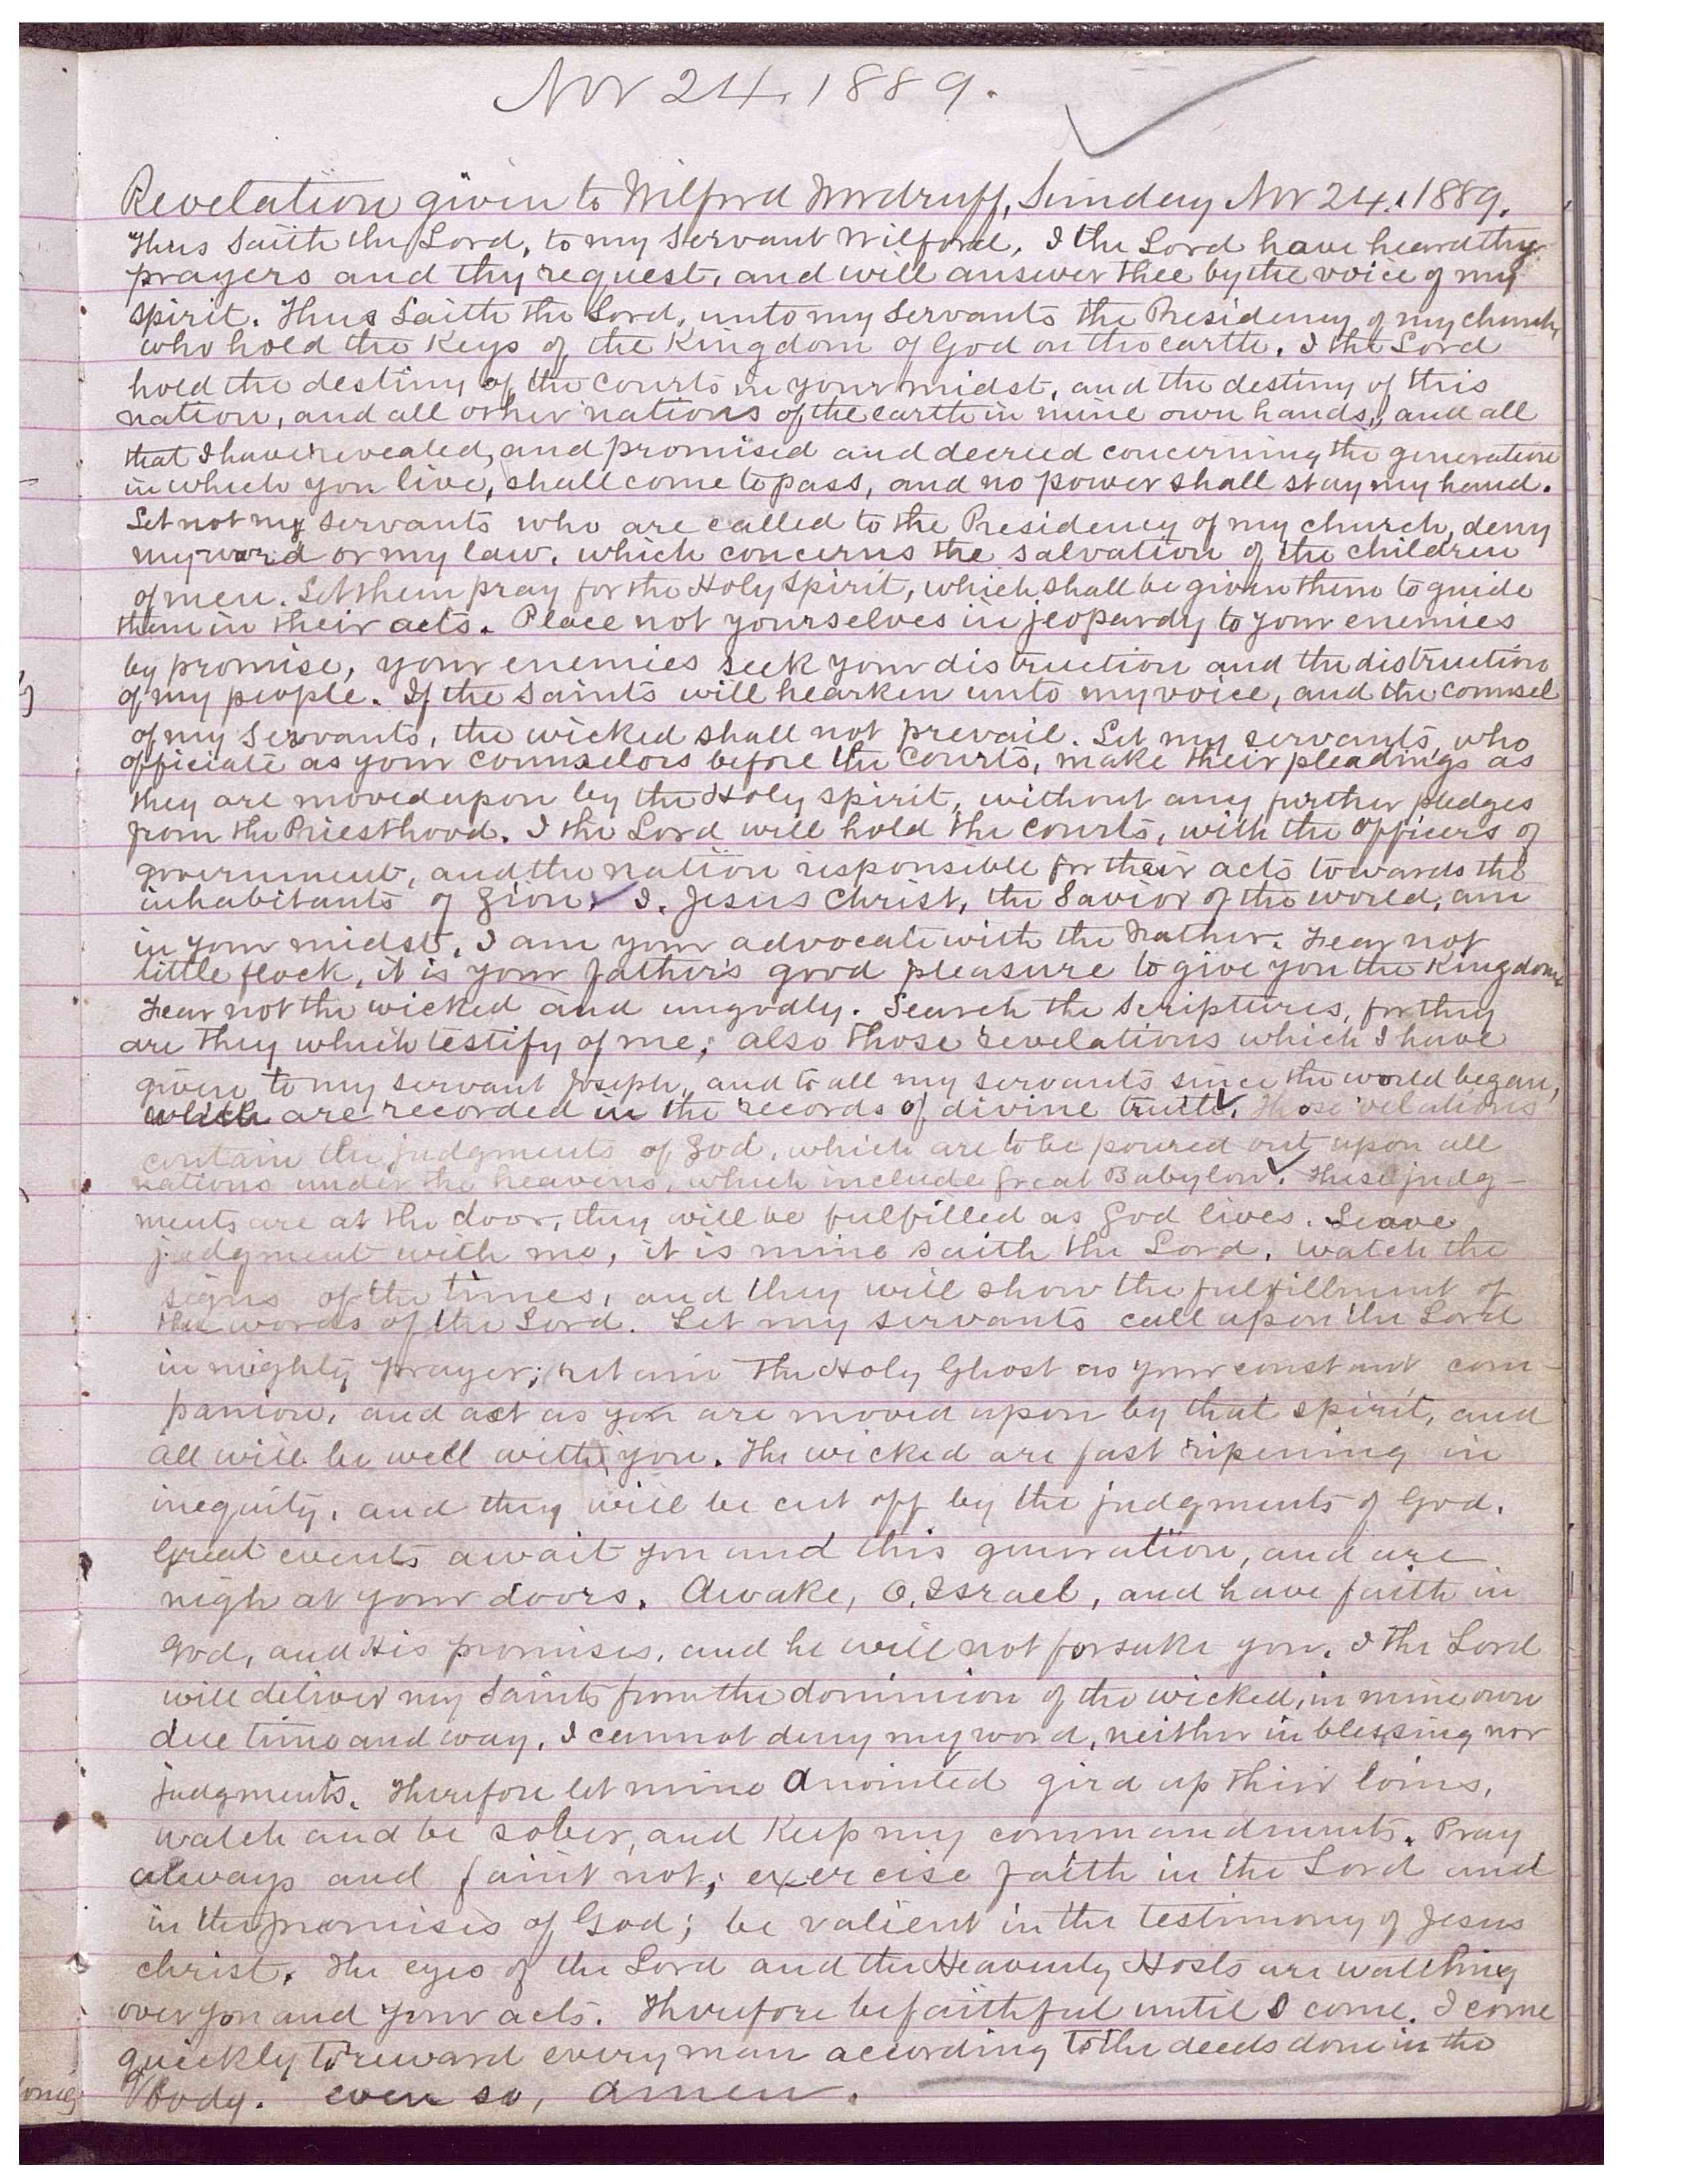 Nov 24, 1889.
Revelation given to Wilford Woodruff, Sunday Nov 24, 1889.
Thus saith the Lord, to my servant Wilford, I the Lord have heard thy
prayers and thy request, and will answer thee by the voice of my
spirit. Thus saith the Lord, unto my servants the Presidency of my church,
who hold the Keys of the Kingdom of God on the earth. I the Lord
hold the destiny of the courts in your midst, and the destiny of this
nation, and all other nations of the earth in mine own hands, and all
that I have revealed, and promised and decreed concerning the generation
in which you live, shall come to pass, and no power shall stay my hand.
Let not my servants who are called to the Presidency of my church, deny
my word or my law, which concerns the salvation of the children
of men. Let them pray for the Holy Spirit, which shall be given them to guide
them in their acts. Place not yourselves in jeopardy to your enemies
by promise, your enemies seek your distruction and the distruction
of my people. If the Saints will hearken unto my voice, and the counsel
of my Servants, the wicked shall not prevail. Let my servants, who
officiate as your counselors before the Courts, make their pleadings as
they are moved upon by the Holy Spirit, without any further pledges
from the Priesthood. I the Lord will hold the courts, with the officers of
government, and the nation responsible for their acts towards the
inhabitants of Zion. I, Jesus Christ, the Savior of the world, am
in your midst. I am your advocate with the Father. Fear not
little flock, it is your Father's good pleasure to give you the Kingdom.
Fear not the wicked and ungodly. Search the scriptures, for they
are they which testify of me; also those revelations which I have
given to my servant Joseph, and to all my servants since the world began,
which are recorded in the records of divine truth. Those velations
contain the judgments of God, which are to be poured out upon all
nations under the heavens, which include Great Babylon. These judg-
ments are at the door, they will be fulfilled as God lives. Leave
judgment with me, it is mine saith the Lord. Watch the
signs of the times, and they will show the fulfillment of
the words of the Lord. Let my servants call upon the Lord
in mighty prayer; retain the Holy Ghost as your constant com-
panion, and act as you are moved upon by that spirit, and
all will be well with you. The wicked are fast ripening in
inequity, and they will be cut off by the judgments of God.
Great events await you and this generation, and are
nigh at your doors. Awake, O, Israel, and have faith in
God, and His promises, and he will not forsake you. I the Lord
will deliver my Saints from the dominion of the wicked, in mine own
due time and way. I cannot deny my word, neither in blessing nor
judgments. Therefore let mine Anointed gird up their loins,
watch and be sober, and keep my commandments. Pray
always and faint not; exercise faith in the Lord and
in the promises of God; be valient in the testimony of Jesus
christ. The eyes of the Lord and the Heavenly Hosts are watching
over you and your acts. Therefore be faithful until I come. I come
quickly to reward every man according to the deeds done in the
body. even so, amen.